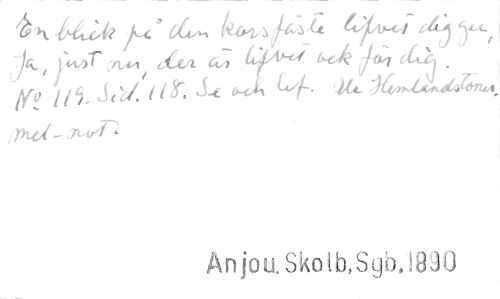 En blick på den korsfäste lifvet dig ger,
Ja, just nu, der är lifvet ock för dig.
No 119. Sid. 118. Se och lef. Ur Hemlandstoner.
mel-not.
Anjou. Skolb, Sgb. 1890